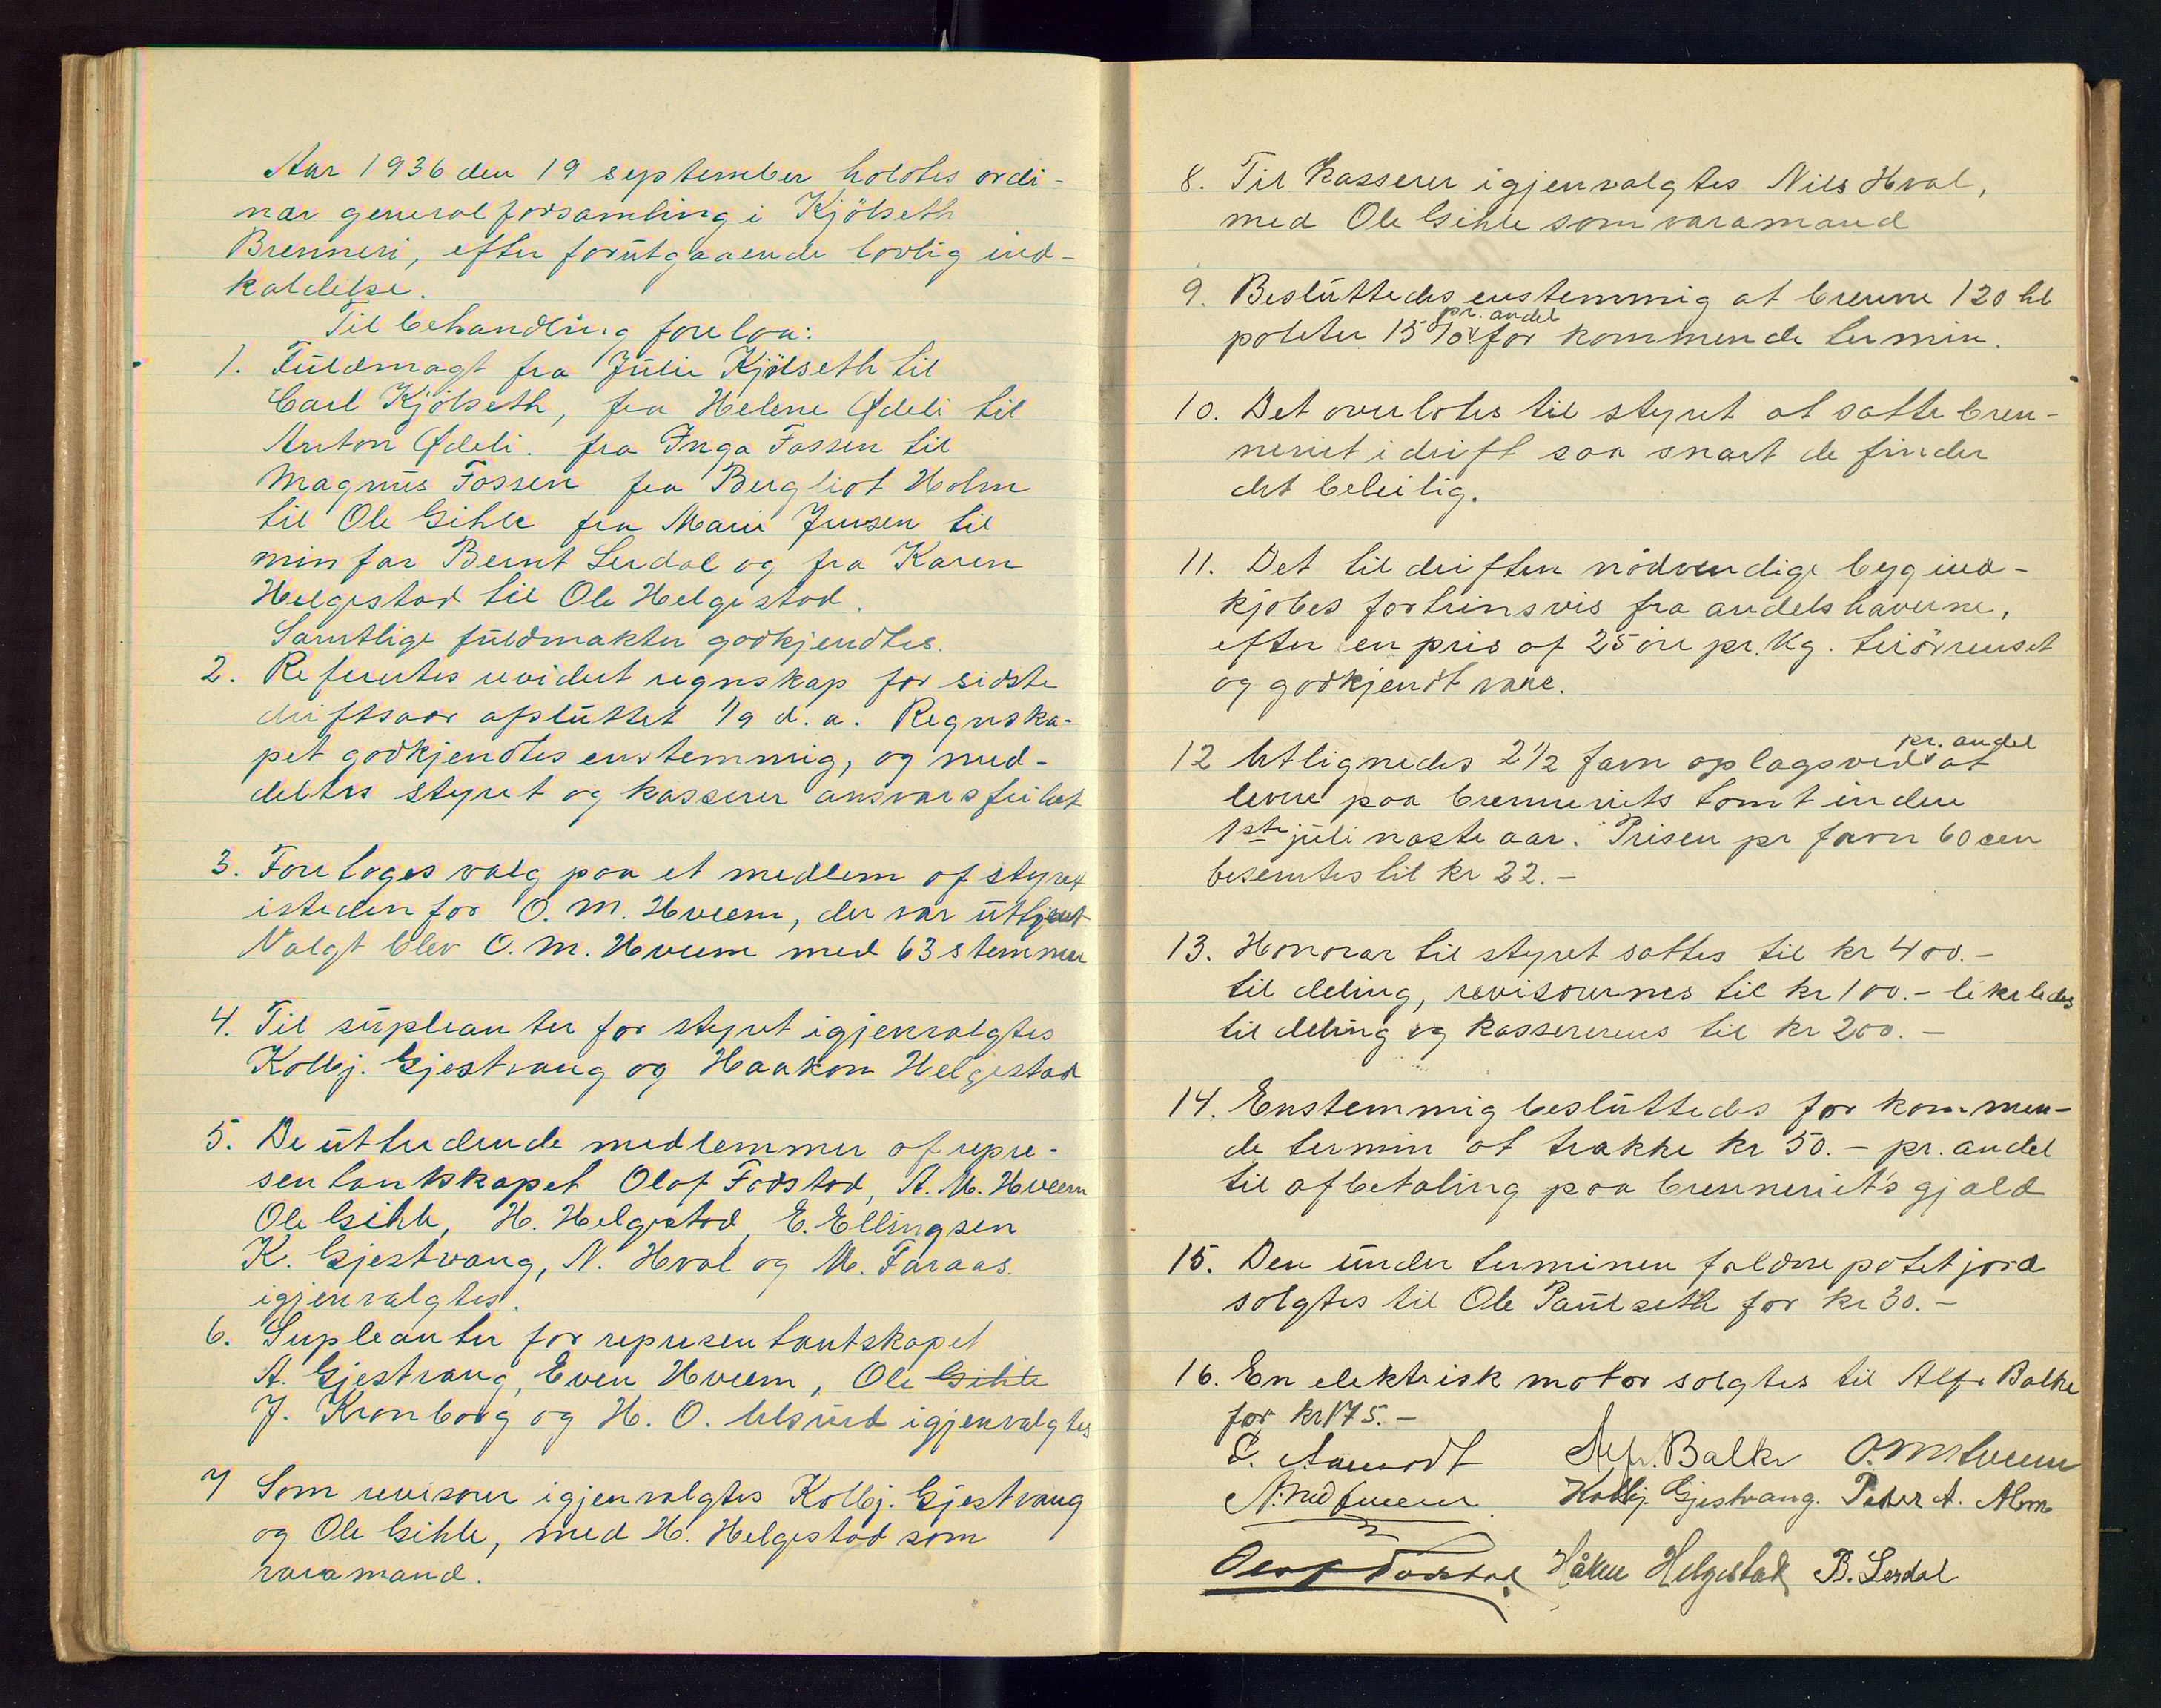 Aar 1936 den 19 september holdtes ordi-
nær generalforsamling i Kjölseth
Brenneri, efter forutgaaende lovlig ind-
kaldelse.
Til behandling forelaa:
1. Fuldmagt fra Julie Kjölseth til
Carl Kjölseth, fra Helene Ødeli til
Anton Ødeli. fra Inga Fossen til
Magnus Fossen fra Bergliot Holm
til Ole Gihle fra Marie Jensen til
min far Bernt Lerdal og fra Karen
Helgestad til Ole Helgestad.
Samtlige fuldmakter godkjendtes.
2. Refertes revidert regnskap for sidste
driftsaar afsluttet 1/9 d.a. Regnska-
pet godkjendtes enstemmig, og med-
deltes styret og kasserer ansvarsfrihet
3. Foretoges valg paa et medlem af styret
istedenfor O. M. Hveem, der var uttjent
Valgt blev O. M. Hveem med 63 stemmer
4. Til supleanter for styret igjenvalgtes
Kolbj. Gjestvang og Haakon Helgestad
5. De uttredende medlemmer af repre-
sentantskapet Olaf Fodstad, A. M. Hveem
Ole Gihle, H. Helgestad, E. Ellingsen
K. Gjestvang, N. Hval og M. Faraas.
igjenvalgtes.
6. Supleanter for representantskapet
A. Gjestvang, Even Hveem, Ole Gihle
J. Kronborg og H. O. Ulsrud igjenvalgtes
7 Som revisorer igjenvalgtes Kolbj. Gjestvang
og Ole Gihle, med H. Helgestad som
varamand.
8. Til Kasserer igjenvalgtes Nils Hval,
med Ole Gihle som varamand
9. Besluttedes enstemmig at brenne 120 hl
pr. andel
poteter 15 % for kommende termin.
10. Det overlotes til styret at sætte bren-
neriet i drift saa snart de finder
det beleilig.
11. Det til driften nödvendige byg ind-
kjøbes fortrinsvis fra andelshaverne,
efter en pris af 25 öre pr. kg. tiörrenset
og godkjendt vare.
pr. andel
12 Utlignedes 2 1/2 favn oplagsved at
levere paa brenneriets tomt inden
1ste juli næste aar. Prisen pr favn 60 cm
bestemtes til kr 22.-
13. Honorar til styret sattes til kr 400.-
til deling, revisorernes til kr 100.- likeledes
til deling og kassererens til kr 200.-
14. Enstemmig besluttedes for kommen-
de termin at trække kr 50.- pr. andel
til afbetaling paa brenneriets gjæld
15. Den under terminen faldne potetjord
solgtes til Ole Paulseth for kr 30.-
16. En elektrisk motor solgtes til Alfr Balke
for kr 175.-
Alfr. Balke O. M Hveem
Kolbj. Gjestvang. Peter A. Alm
Olaf Fodstad Håkon Helgestad B. Lerdal